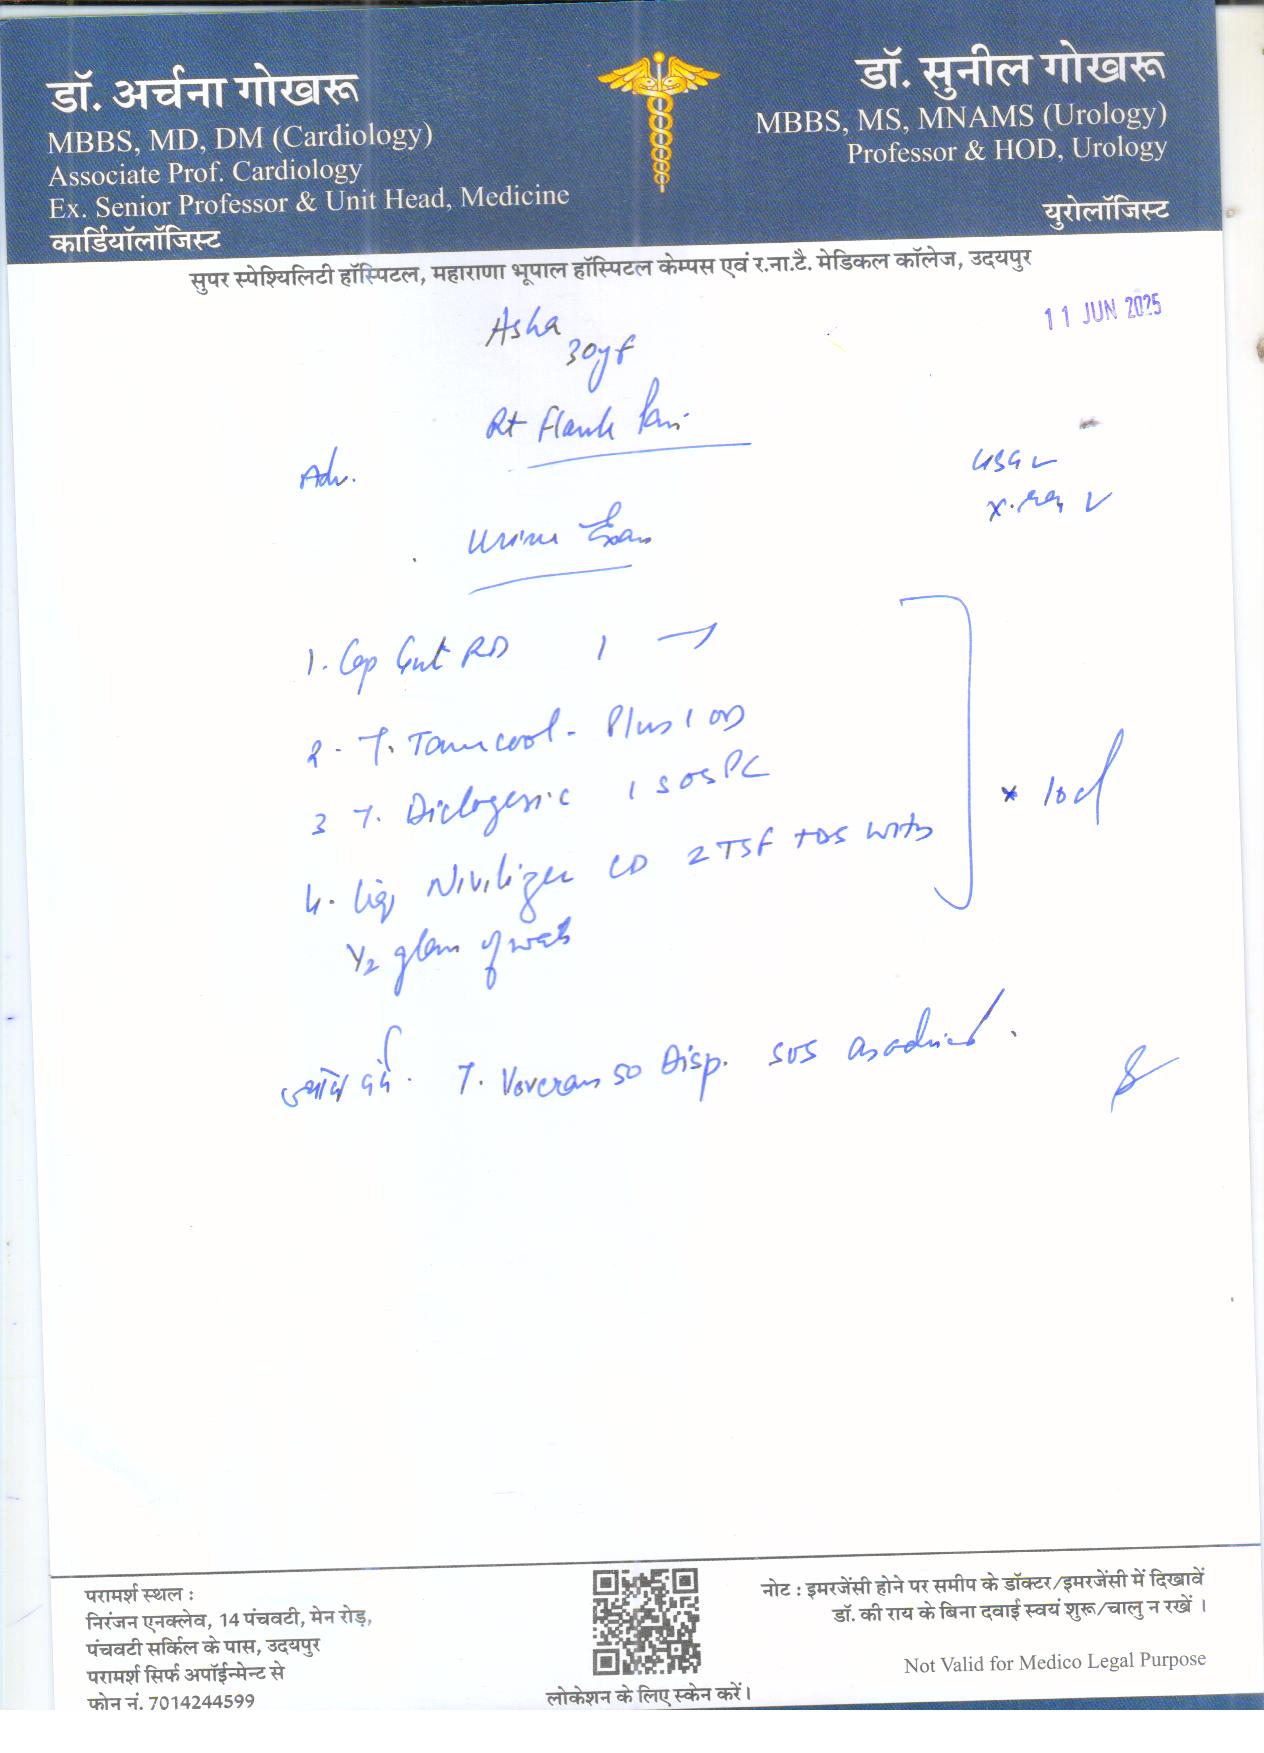 डॉ. अर्चना गोखरू
MBBS, MD, DM (Cardiology)
Associate Prof. Cardiology
Ex. Senior Professor & Unit Head, Medicine
कार्डियॉलॉजिस्ट
डॉ. सुनील गोखरू
MBBS, MS, MNAMS (Urology)
Professor & HOD, Urology
युरोलॉजिस्ट
सुपर स्पेश्यिलिटी हॉस्पिटल, महाराणा भूपाल हॉस्पिटल केम्पस एवं र.ना.टै. मेडिकल कॉलेज, उदयपुर
11 JUN 2025
Asha
30yf
Rt Flank Pain
Adv.
USG ✓
X-Ray ✓
Urine Exam
1. Cap RD 1 →
2. T. Tamcool-Plus 1 OD
3 T. Diclogesic 1 SOS PC
4. Liq CD 2 TSF TDS with
1/2 glass of water
* 10d
दर्द. T. Voveran 50 Disp. SOS as advised.
परामर्श स्थल :
निरंजन एनक्लेव, 14 पंचवटी, मेन रोड़,
पंचवटी सर्किल के पास, उदयपुर
परामर्श सिर्फ अपॉईन्मेन्ट से
फोन नं. 7014244599
लोकेशन के लिए स्केन करें।
नोट : इमरजेंसी होने पर समीप के डॉक्टर/इमरजेंसी में दिखावें
डॉ. की राय के बिना दवाई स्वयं शुरू/चालु न रखें ।
Not Valid for Medico Legal Purpose